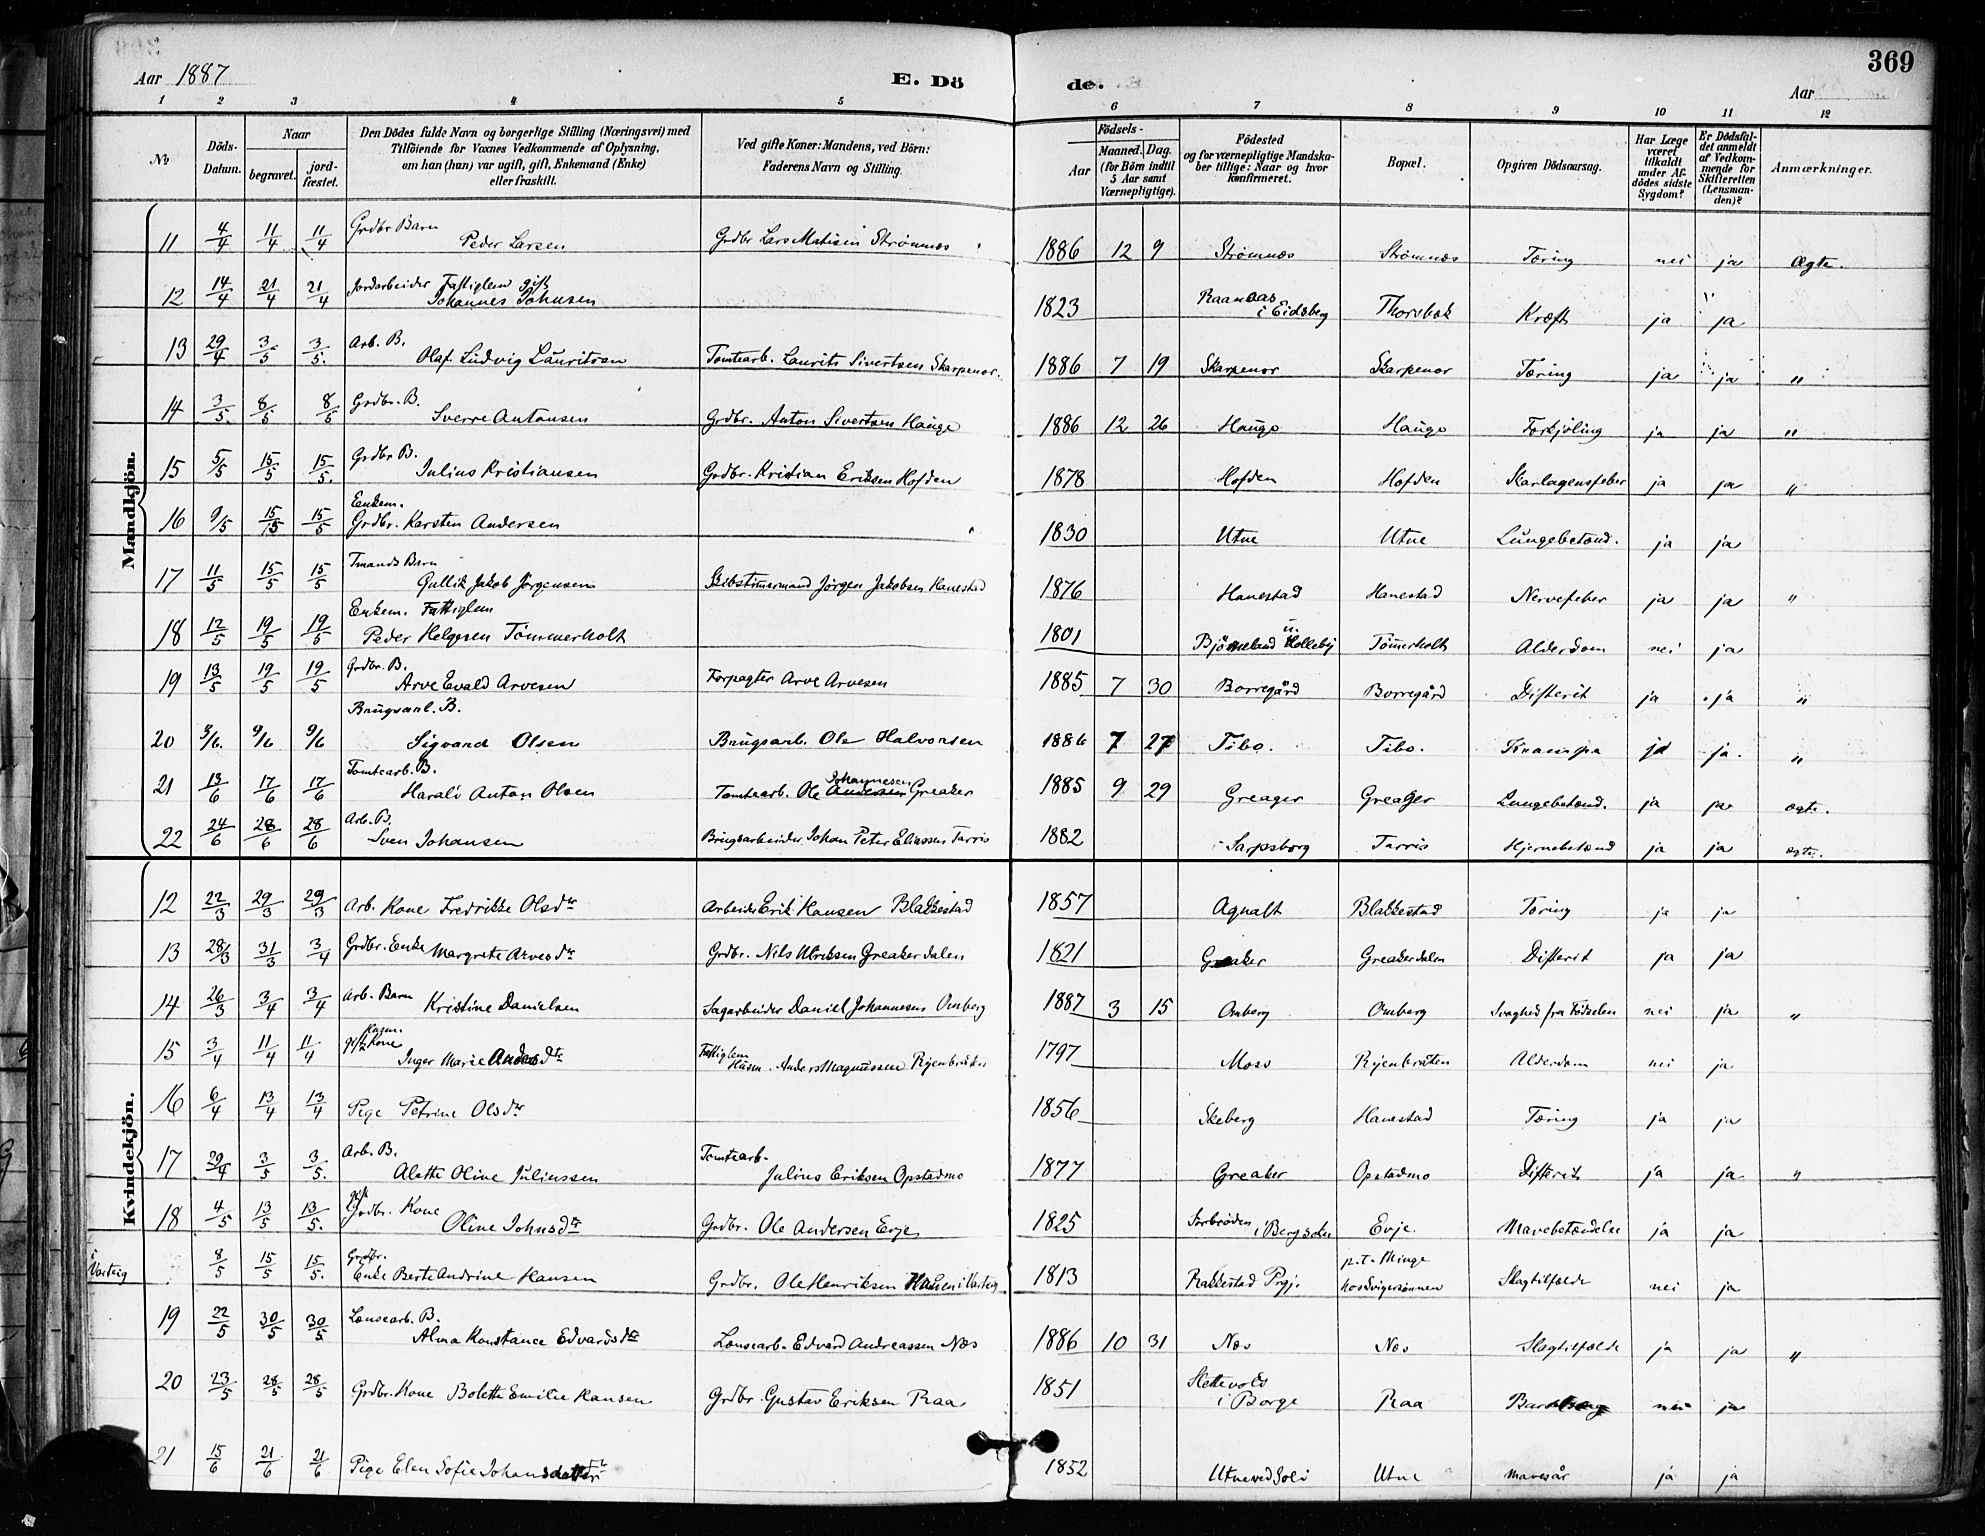 369
Aar 1887
E. Dö
de.
Aar
1 2 3 4 5 6 7 8 9 10 11 12
No
Döds-Datum.
Naar
begravet.
jord-fæstet.
Den Dödes fulde Navn og borgerlige Stilling (Næringsvei) med
Tilföiende for Voxnes Vedkommende af Oplysning,
om han (hun) var ugift, gift, Enkemand (Enke)
eller fraskilt.
Ved gifte Koner: Mandens, ved Börn:
Faderens Navn og Stilling.
Födsels-
Aar
Maaned. Dag.
(for Börn indtil
5 Aar samt
Værnepligtige).
Födested
og for værnepligtige Mandska-
ber tillige: Naar og hvor
konfirmeret.
Bopæl.
Opgiven Dödsaarsag.
Har Læge
været
tilkaldt
under Af-
dödes sidste
Sygdom?
Er Dödsfal-
det anmeldt
af Vedkom-
mende for
Skifteretten
(Lensman-
den)?
Anmærkninger.
Mandkjön.
11 4/4 11/4 11/4 Grdbr Barn Peder Larsen Grdbr Lars Matisen Strömnæs 1886 12 9 Strömnæs Strömnæs Tæring nei ja Ægte.
12 14/4 21/4 21/4 Jordarbeider Fattiglem gift Johannes Johnsen 1823 Raanaas i Eidsberg Thorsbæk Kræft ja ja
13 29/4 3/5 3/5. Arb. B. Olaf Ludvig Lauritsen Tomtearb. Laurits Sivertsen Skarpenor. 1886 7 19 Skarpenor Skarpenor Tæring ja ja "
14 3/5. 8/5 8/5 Grdbr. B. Sverre Antonsen Grdbr. Anton Sivertsen Hauge 1886 12 26 Hauge Hauge Forkjöling ja ja "
15 5/5 15/5 15/5. Grdbr B. Julius Kristiansen Grdbr. Kristian Eriksen Hofden 1878 Hofden Hofden Skarlagensfeber ja ja "
16 9/5 15/5 15/5 Enkem. Grdbr. Karsten Andersen 1830 Utne Utne Lungebetænd. ja ja
17 11/5 15/5 15/5 Tmands Barn Gullik Jakob Jörgensen Skibstimermand Jörgen Jakobsen Hanestad 1876 Hanestad Hanestad Nervefeber ja ja "
18 12/5 19/5 19/5 Enkem. Fattiglem Peder Helgesen Tömmerholt 1801 Björneland u. Holleby Tömerholt Alderdom nei ja
19 13/5 19/5 19/5 Grdbr. B. Arve Evald Arvesen Forpagter Arve Arvesen 1885 7 30 Borregård Borregård Difterit ja ja "
20 3/6. 9/6 9/6 Brugsarb. B. Sigvard Olsen Brugsarb. Ole Halvorsen 1886 7 27 Tibo. Tibo. Krampe ja ja. "
21 13/6 17/6 17/6 Tomtearb. B. Harald Anton Olsen Tomtearb. Ole Johannesen Greaker 1885 9 29 Greager Greager Lungebetænd. ja ja ægte.
22 24/6 28/6 28/6 Arb. B. Sven Johansen Brugsarbeider Johan Peter Eliassen Tarris 1882 i Sarpsborg Tarris Hjernebetænd ja ja ægte.
Kvindekjön.
12 22/3 29/3 29/3 Arb. Kone Fredrikke Olsdtr Arbeider Erik Hansen Blakkestad 1857 Agnalt Blakkestad Tæring ja ja
13 28/3 31/3 3/4 Grdbr. Enke Margrete Arvesdtr Grdbr. Nils Ulriksen Greakerdalen 1821 Greaker Greakerdalen Difterit ja ja
14 26/3 3/4 3/4 Arb. Barn Kristine Danielsen Sagarbeider Daniel Johannesen Omberg 1887 3 15 Omberg Omberg Svaghed fra Födselen nei ja "
15 3/4 11/4 11/4 gift Kone Inger Marie Andersdtr Fattiglem Husm. Anders Magnussen Ryenbråten 1797 Moss Ryenbråten Alderdom nei ja
16 6/4 13/4 13/4 Pige Petrine Olsdtr 1856 Skeberg Hanestad Tæring ja ja
17 29/4 3/5 3/5. Arb. B. Alette Oline Juliussen Tomtearb. Julius Eriksen Opstadmo 1877 Greaker Opstadmo Difterit ja ja "
18 4/5 13/5 13/5. gift Grdbr. Kone Oline Johnsdtr Grdbr. Ole Andersen Evje 1825 i Bergsokn Evje. Mavebetændelse ja ja
i Varteig 8/5 15/5 15/5. Grdbr. Enke Berte Andrine Hansen Grdbr. Ole Henriksen i Varteig 1813 Rakkestad Prgj. p.t. Minge hos Svigersönnen Slagtilfælde nei ja
19 22/5 30/5 30/5 Lænsearb. B. Alma Konstance Edvardsdtr Lænsearb. Edvard Andreassen Næs 1886 10 31 Næs Næs Slagtilfælde ja ja "
20 23/5 28/5 28/5 Grdbr. Kone Bolette Emilie Hansen Grdbr. Gustav Eriksen Raa 1851 Slettevold i Borge Raa nei ja
21 15/6 21/6 21/6 Pige Elen Sofie Johansdatter 1852 Utne ved Soli Utne Mavesår ja ja